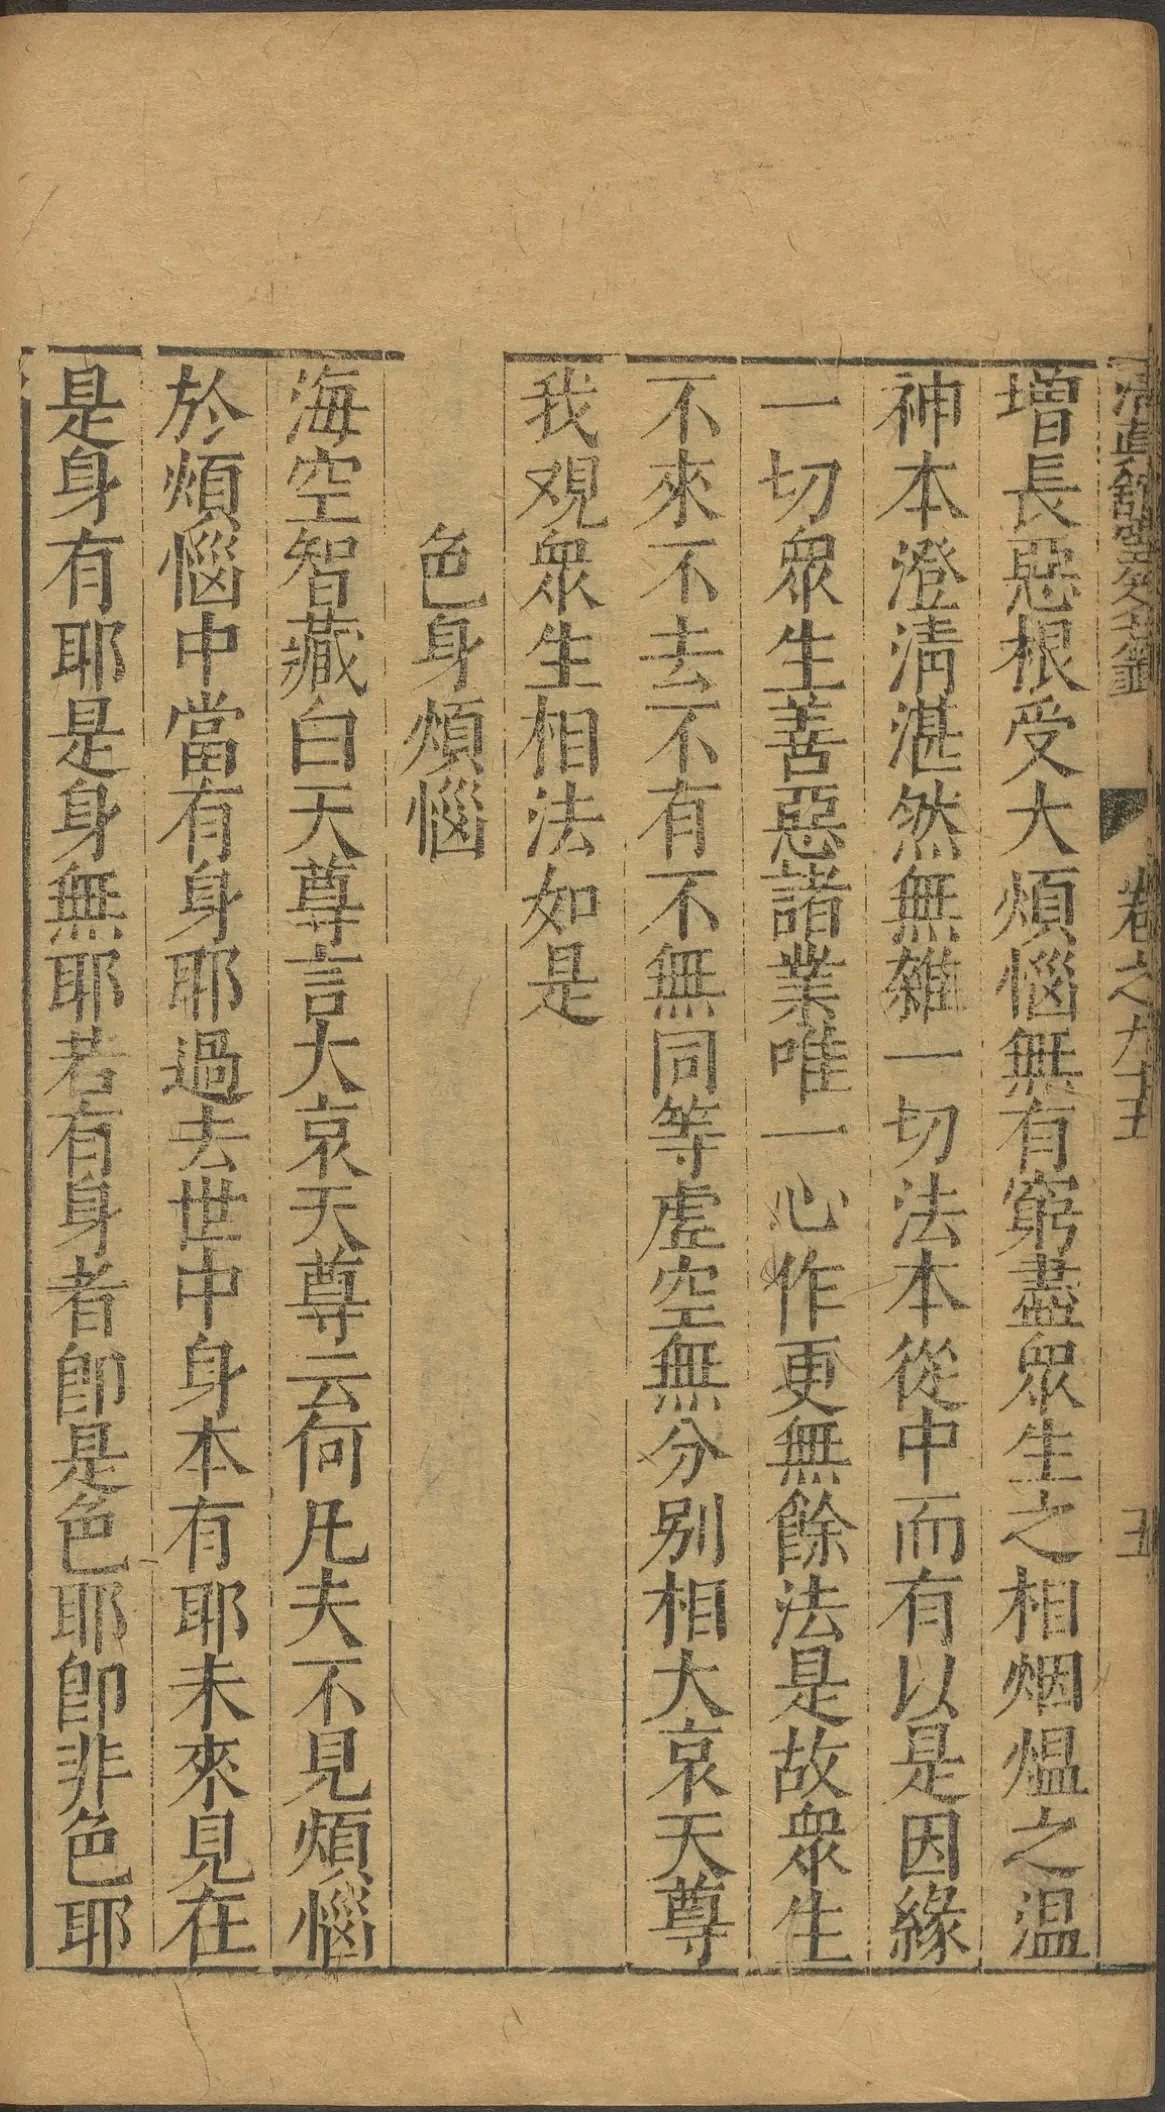 卷之九十五
五
增長惡根受大煩惱無有窮盡衆生之相烟熅之温
神本澄清湛然無雜一切法本從中而有以是因緣
一切衆生善惡諸業唯一心作更無餘法是故衆生
不來不去不有不無同等虛空無分别相大哀天尊
我观衆生相法如是
色身煩惱
海空智藏白天尊言大哀天尊云何凡夫不見煩惱
於煩惱中當有身耶過去世中身本有耶未來見在
是身有耶是身無耶若有身者卽是色耶卽非色耶